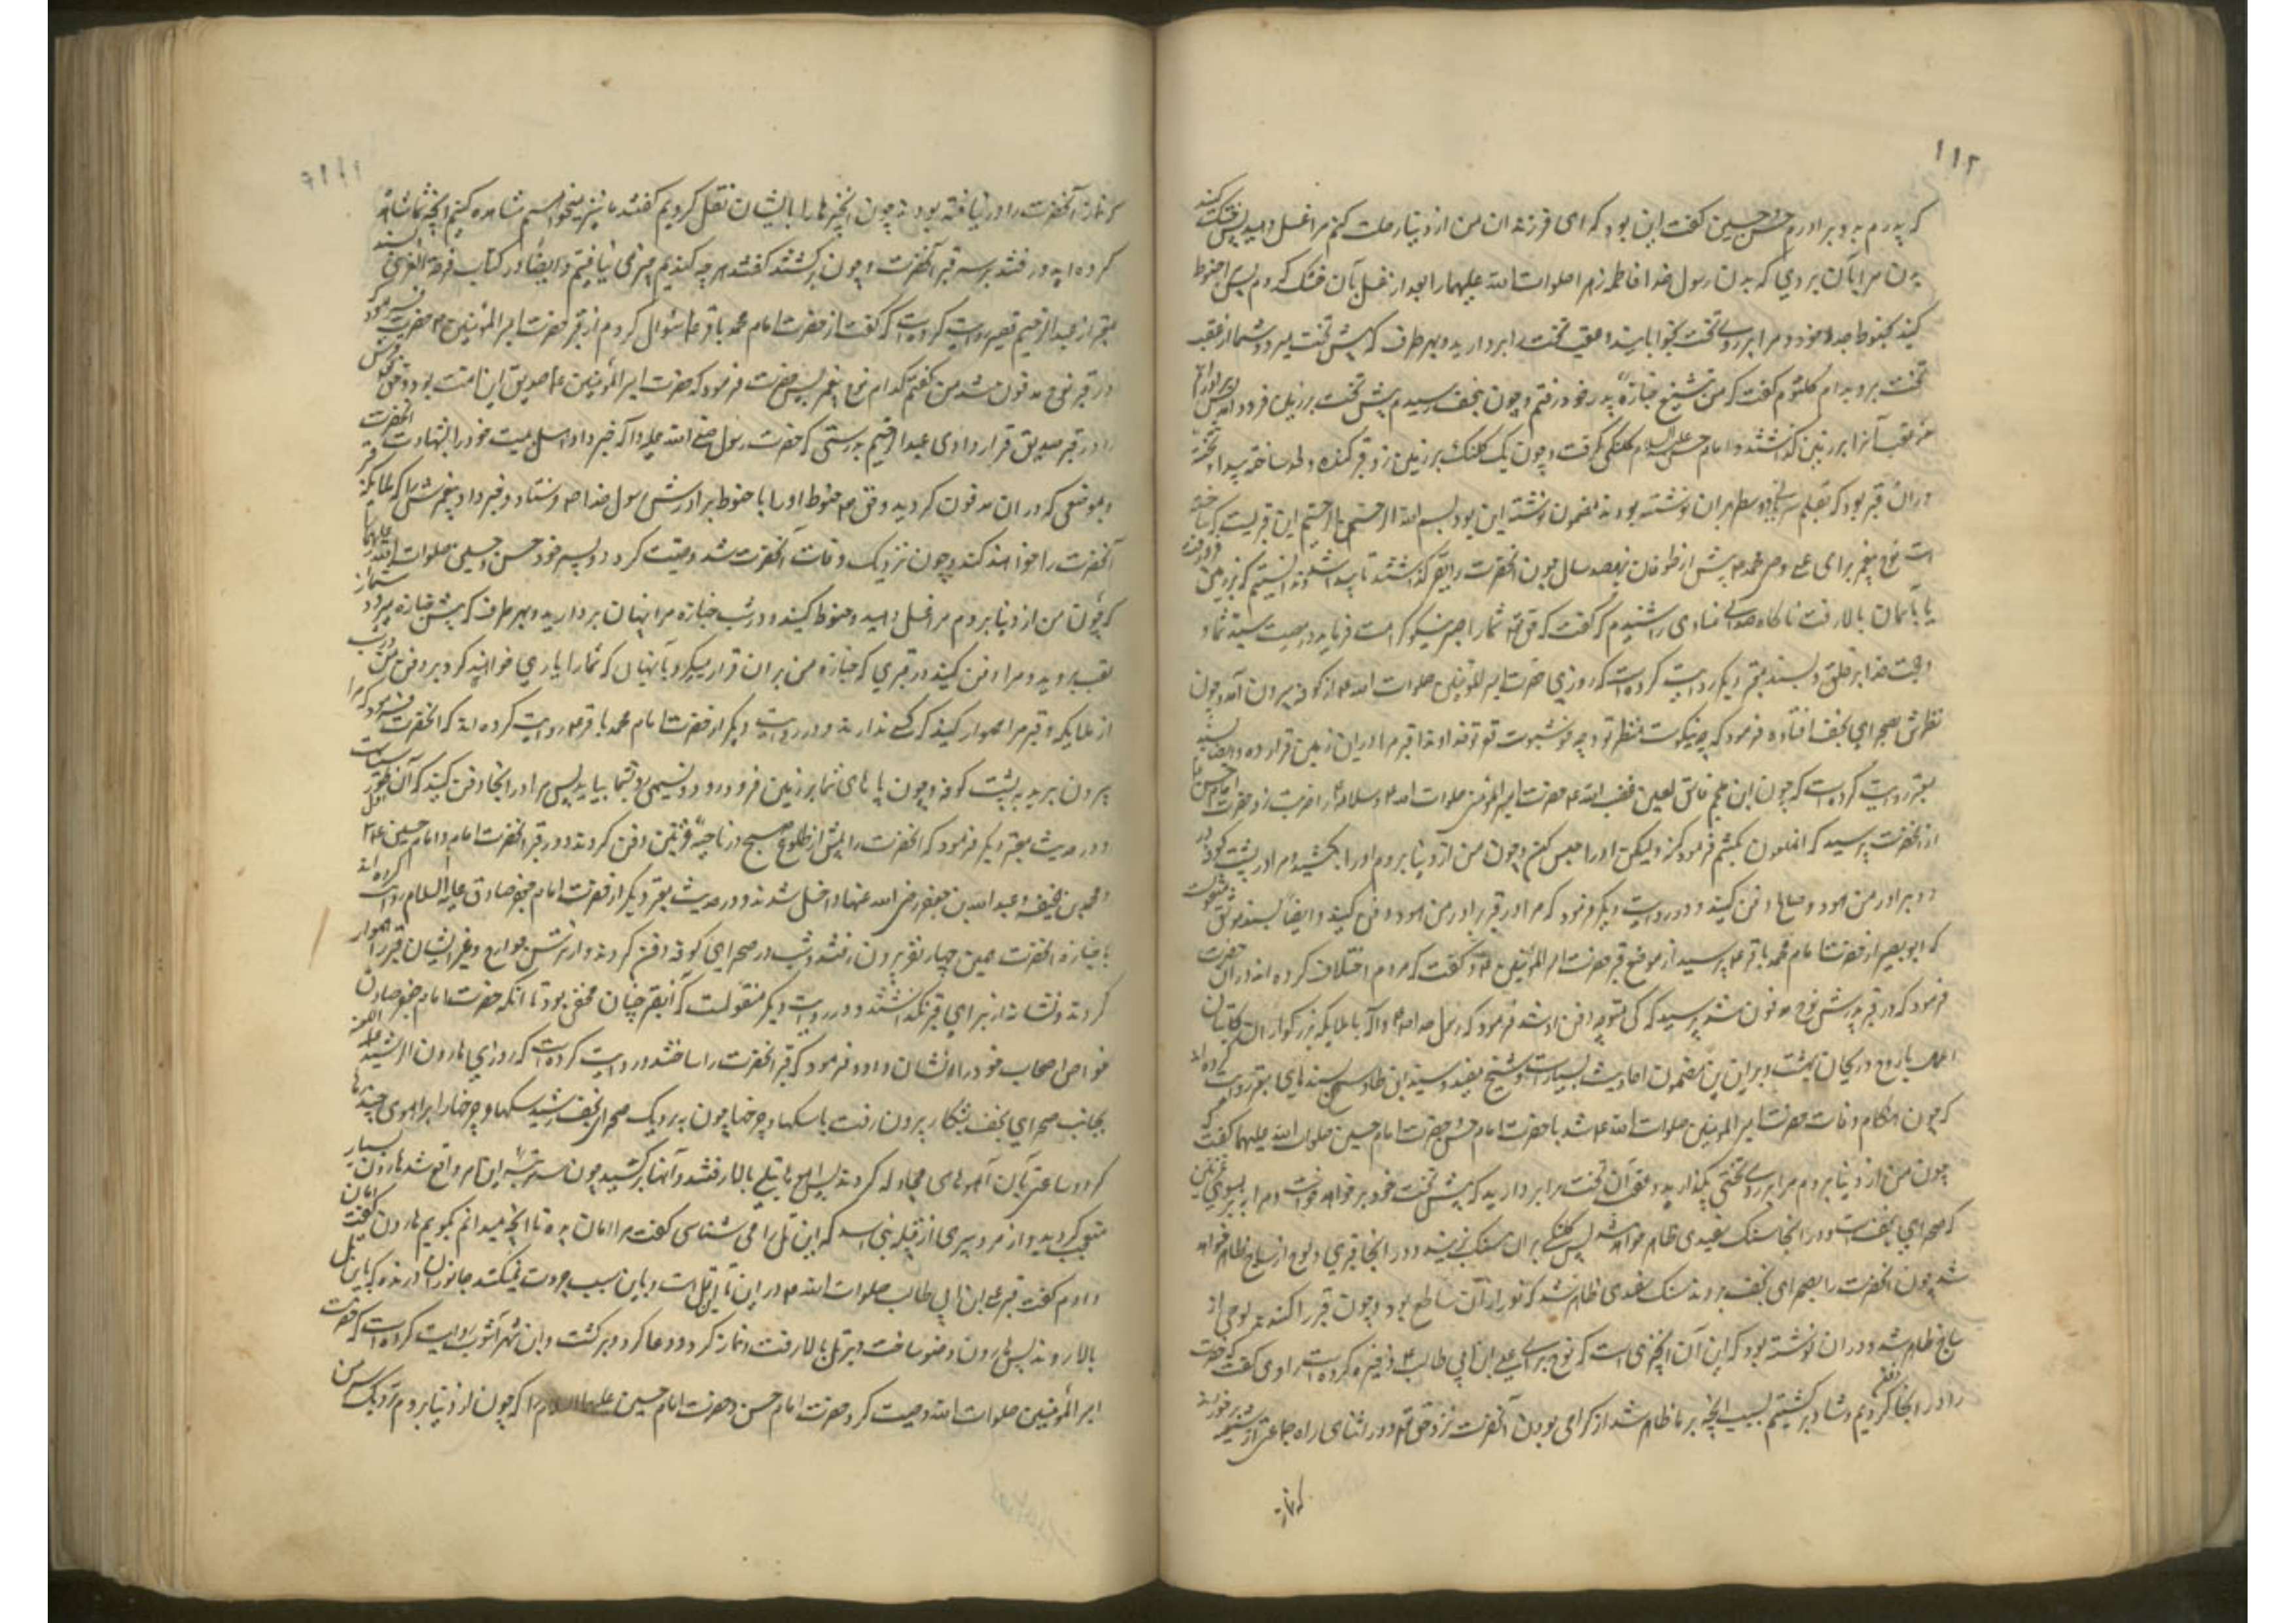 ۱۱۲
که پدرم به دو برادرم حسن و حسین گفت این بود که ای فرزندان من از دنیا رحلت کنم مرا غسل دهید پس خشک کنید
بدن مرا بآن بردی که بدن رسول خدا و فاطمه زهرا صلوات الله علیهما را بعد از غسل بآن خشک کردم پس مرا حنوط
کنید بحنوط جد خود و مرا بر روی تخت بخوابانید و عقب تخت را بردارید و بهر طرف که پیش تخت میرود شما از عقب
تخت بروید ام کلثوم گفت که من بتشییع جنازه پدر خود رفتم و چون بنجف رسیدم پیش تخت بر زمین فرود آمد پس برادرانم
عقب آنرا بر زمین گذاشتند و امام حسن علیه السلام کلنگی گرفت و چون یک کلنگ بر زمین زد قبر کنده و لحد ساخته پیدا و تخته
در آن قبر بود که بقلم سریانی دو سطر بر آن نوشته بودند مضمون نوشته این بود بسم الله الرحمن الرحیم این قبریست که ساخته
است نوح پیغمبر برای علی وصی محمد پیش از طوفان بهفصد سال چون آنحضرت را بقبر گذاشتند ناپیدا شد و ندانستیم که بزمین فرو رفت
یا بآسمان بالا رفت ناگاه صدای منادی را شنیدم که گفت که حق تعالی شما را صبر نیکو کرامت فرماید در مصیبت سید شما و
حجت خدا بر خلق و بسند معتبر دیگر روایت کرده است که روزی حضرت امیر المومنین صلوات الله علیه از کوفه بیرون آمد و چون
نظرش بصحرای نجف افتاد فرمود که چه نیکوست منظر تو و چه خوشبوست قعر تو خداوندا قبر مرا در این زمین قرار ده و ایضا بسند
معتبر روایت کرده است که چون ابن ملجم فاسق لعین غضب الله علیه حضرت امیر المومنین صلوات الله و سلامه علیه را ضربت زد حضرت امام حسن
از آنحضرت پرسید که آن ملعون را بکشم فرمود که نه ولیکن او را حبس کن و چون من از دنیا بروم او را بکشید و مرا در پشت کوفه در
دو برادر من هود و صالح دفن کنید و در روایت دیگر فرمود که مرا در قبر برادر من هود دفن کنید و ایضا بسند موثق منقولست
که ابو بصیر از حضرت امام محمد باقر پرسید از موضع قبر حضرت امیر المومنین و گفت که مردم اختلاف کرده اند در آن حضرت
فرمود که در قبر پدرش نوح مدفون شد پرسید که کی متوجه دفن او شد فرمود که رسول خدا صلی الله علیه و آله با ملائکه بزرگواران کاتبان
اعمال با روح و ریحان بهشت و بر این مضمون احادیث بسیار است و شیخ مفید و سید ابن طاوس بسندهای معتبر روایت کرده اند
که چون هنگام وفات حضرت امیر المومنین صلوات الله علیه شد با حضرت امام حسن و حضرت امام حسین صلوات الله علیهما گفت که
چون من از دنیا بروم مرا بر روی تختی بگذارید و عقب آن تخت را بردارید که پیش تخت خود بر خواهد خواست و مرا ببرید بسوی غریین
که صحرای نجف است و در آنجا سنگ سفیدی ظاهر خواهد شد پس کلنگی بر آن سنگ بزنید و در آنجا قبری و لوح از ساج ظاهر خواهد
شد چون آنحضرت را بصحرای نجف بردند سنگ سفیدی ظاهر شد که نور از آن ساطع بود و چون قبر را کندند لوحی از
ساج ظاهر شد و در آن نوشته بود که این آن چیزی است که نوح برای علی ابن ابی طالب ذخیره کرده است راوی گفت که حضرت
را در آنجا دفن کردیم و شاد برگشتیم بسبب آنچه بر ما ظاهر شد از گرامی بودن آنحضرت نزد حق تعالی و در اثنای راه جماعتی از شیعه برخوردند
که نماز
که نماز آنحضرت را در نیافته بودند چون این خبرها را بایشان نقل کردیم گفتند ما نیز میخواهیم مشاهده کنیم آنچه شما مشاهده
کرده اید و رفتند بر سر قبر آنحضرت و چون برگشتند گفتند هر چه کندیم چیزی نیافتیم و ایضا در کتاب فرحة الغری بسند
معتبر از عبد الرحیم قصیر روایت کرده است که گفت از حضرت امام محمد باقر سوال کردم از قبر حضرت امیر المومنین حضرت فرمود
در قبر نوح مدفون شد من گفتم کدام نوح پیغمبر پس حضرت فرمود که حضرت امیر المومنین صدیق این امت بود و حق تعالی قبرش
را در قبر صدیق قرار داد ای عبد الرحیم بدرستی که حضرت رسول صلی الله علیه و آله خبر داد اهل بیت خود را بشهادت آنحضرت
و بموضعی که در آن مدفون گردید و حق تعالی حنوط او را با حنوط برادرش رسول خدا فرستاد و خبر داد پیغمبرش را که ملائکه قبر
آنحضرت را خواهند کند و چون نزدیک وفات آنحضرت شد وصیت کرد دو پسر خود حسن و حسین صلوات الله علیهما
که چون من از دنیا بروم مرا غسل دهید و حنوط کنید و در شب جنازه مرا پنهان بردارید و بهر طرف که پیش جنازه میرود شما از
عقب بروید و مرا دفن کنید در قبری که جنازه من بر آن قرار میگیرد با آنهائی که شما را یاری خواهند کرد بر دفن من در شب
از ملائکه و قبر مرا هموار کنید که کسی نداند و در روایت دیگر از حضرت امام محمد باقر روایت کرده اند که آنحضرت فرمود که مرا
بیرون برید به پشت کوفه و چون پاهای شما بر زمین فرو رود و نسیمی رو بشما بیاید پس مرا در آنجا دفن کنید که آن اول طور سیناست
و در حدیث معتبر دیگر فرمود که آنحضرت را پیش از طلوع صبح در ناحیه غریین دفن کردند و در قبر آنحضرت امام حسن و امام حسین
و محمد بن حنفیه و عبد الله بن جعفر رضی الله عنهما داخل شدند و در حدیث معتبر دیگر از حضرت امام جعفر صادق علیه السلام روایت کرده اند
با جنازه آنحضرت همین چهار نفر بیرون رفتند و شب در صحرای کوفه دفن کردند و از ترس خوارج و غیر ایشان قبر را هموار
کردند و نشانه از برای قبر نگذاشتند و در روایت دیگر منقولست که آن قبر چنان مخفی بود تا آنکه حضرت امام جعفر صادق
خواص اصحاب خود را نشان داد و فرمود که قبر آنحضرت را ساختند و روایت کرده است که روزی هارون الرشید علیه اللعنه
بجانب صحرای نجف بشکار بیرون رفت با سگها و چرخها چون نزدیک صحرای نجف رسید سگها و چرخها را برای آهوی چند رها
کرد و ساعتی با آن آهوهای مجادله کردند پس آهوها بتلی بالا رفتند و آنها برگشتند چون سه مرتبه این امر واقع شد هارون بسیار
متعجب گردید و از مرد پیری از قبیله بنی اسد که این تل را می شناسی گفت مرا امان بده تا آنچه میدانم بگویم هارون گفت امان
دادم گفت قبر علی بن ابی طالب صلوات الله علیه در این تل است و باین سبب جرات نمیکنند جانوران درنده که باین تل
بالا روند پس هارون وضو ساخت و بر تل بالا رفت و نماز کرد و دعا کرد و برگشت و ابن شهر آشوب روایت کرده است که حضرت
امیر المومنین صلوات الله علیه وصیت کرد حضرت امام حسن و حضرت امام حسین علیهما السلام را که چون از دنیا بروم نزدیک سر من